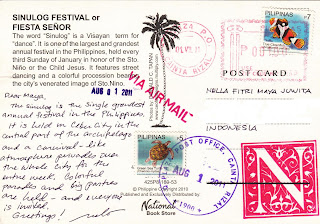 SINULOG FESTIVAL or
FIESTA SEÑOR
The word "Sinulog" is a Visayan term for
"dance". It is one of the largest and grandest
annual festival in the Philippines, held every
third Sunday of January in honor of the Sto.
Niño or the Child Jesus. It features street
dancing and a colorful procession bearing
the city's venerated image of Sto. Nino.
AUG 01 2011
VIA AIR MAIL
Dear Maya,
The Sinulog is the single grandest
annual festival in the Philippines.
It is held in Cebu City in the
central part of the archipelago
and a carnival-like
atmosphere pervades over
the whole City for the
entire week. Colorful
parades and big parties
are held - and everyone
is invited.
Greetings!
PILIPINAS
PILIPINAS
POST CARD
NELLA FITRI MAYA JUWITA
INDONESIA
POST OFFICE, CAINTA, RIZAL
AUG 1 2011
© Philippine Copyright 2010
National
Book Store
N